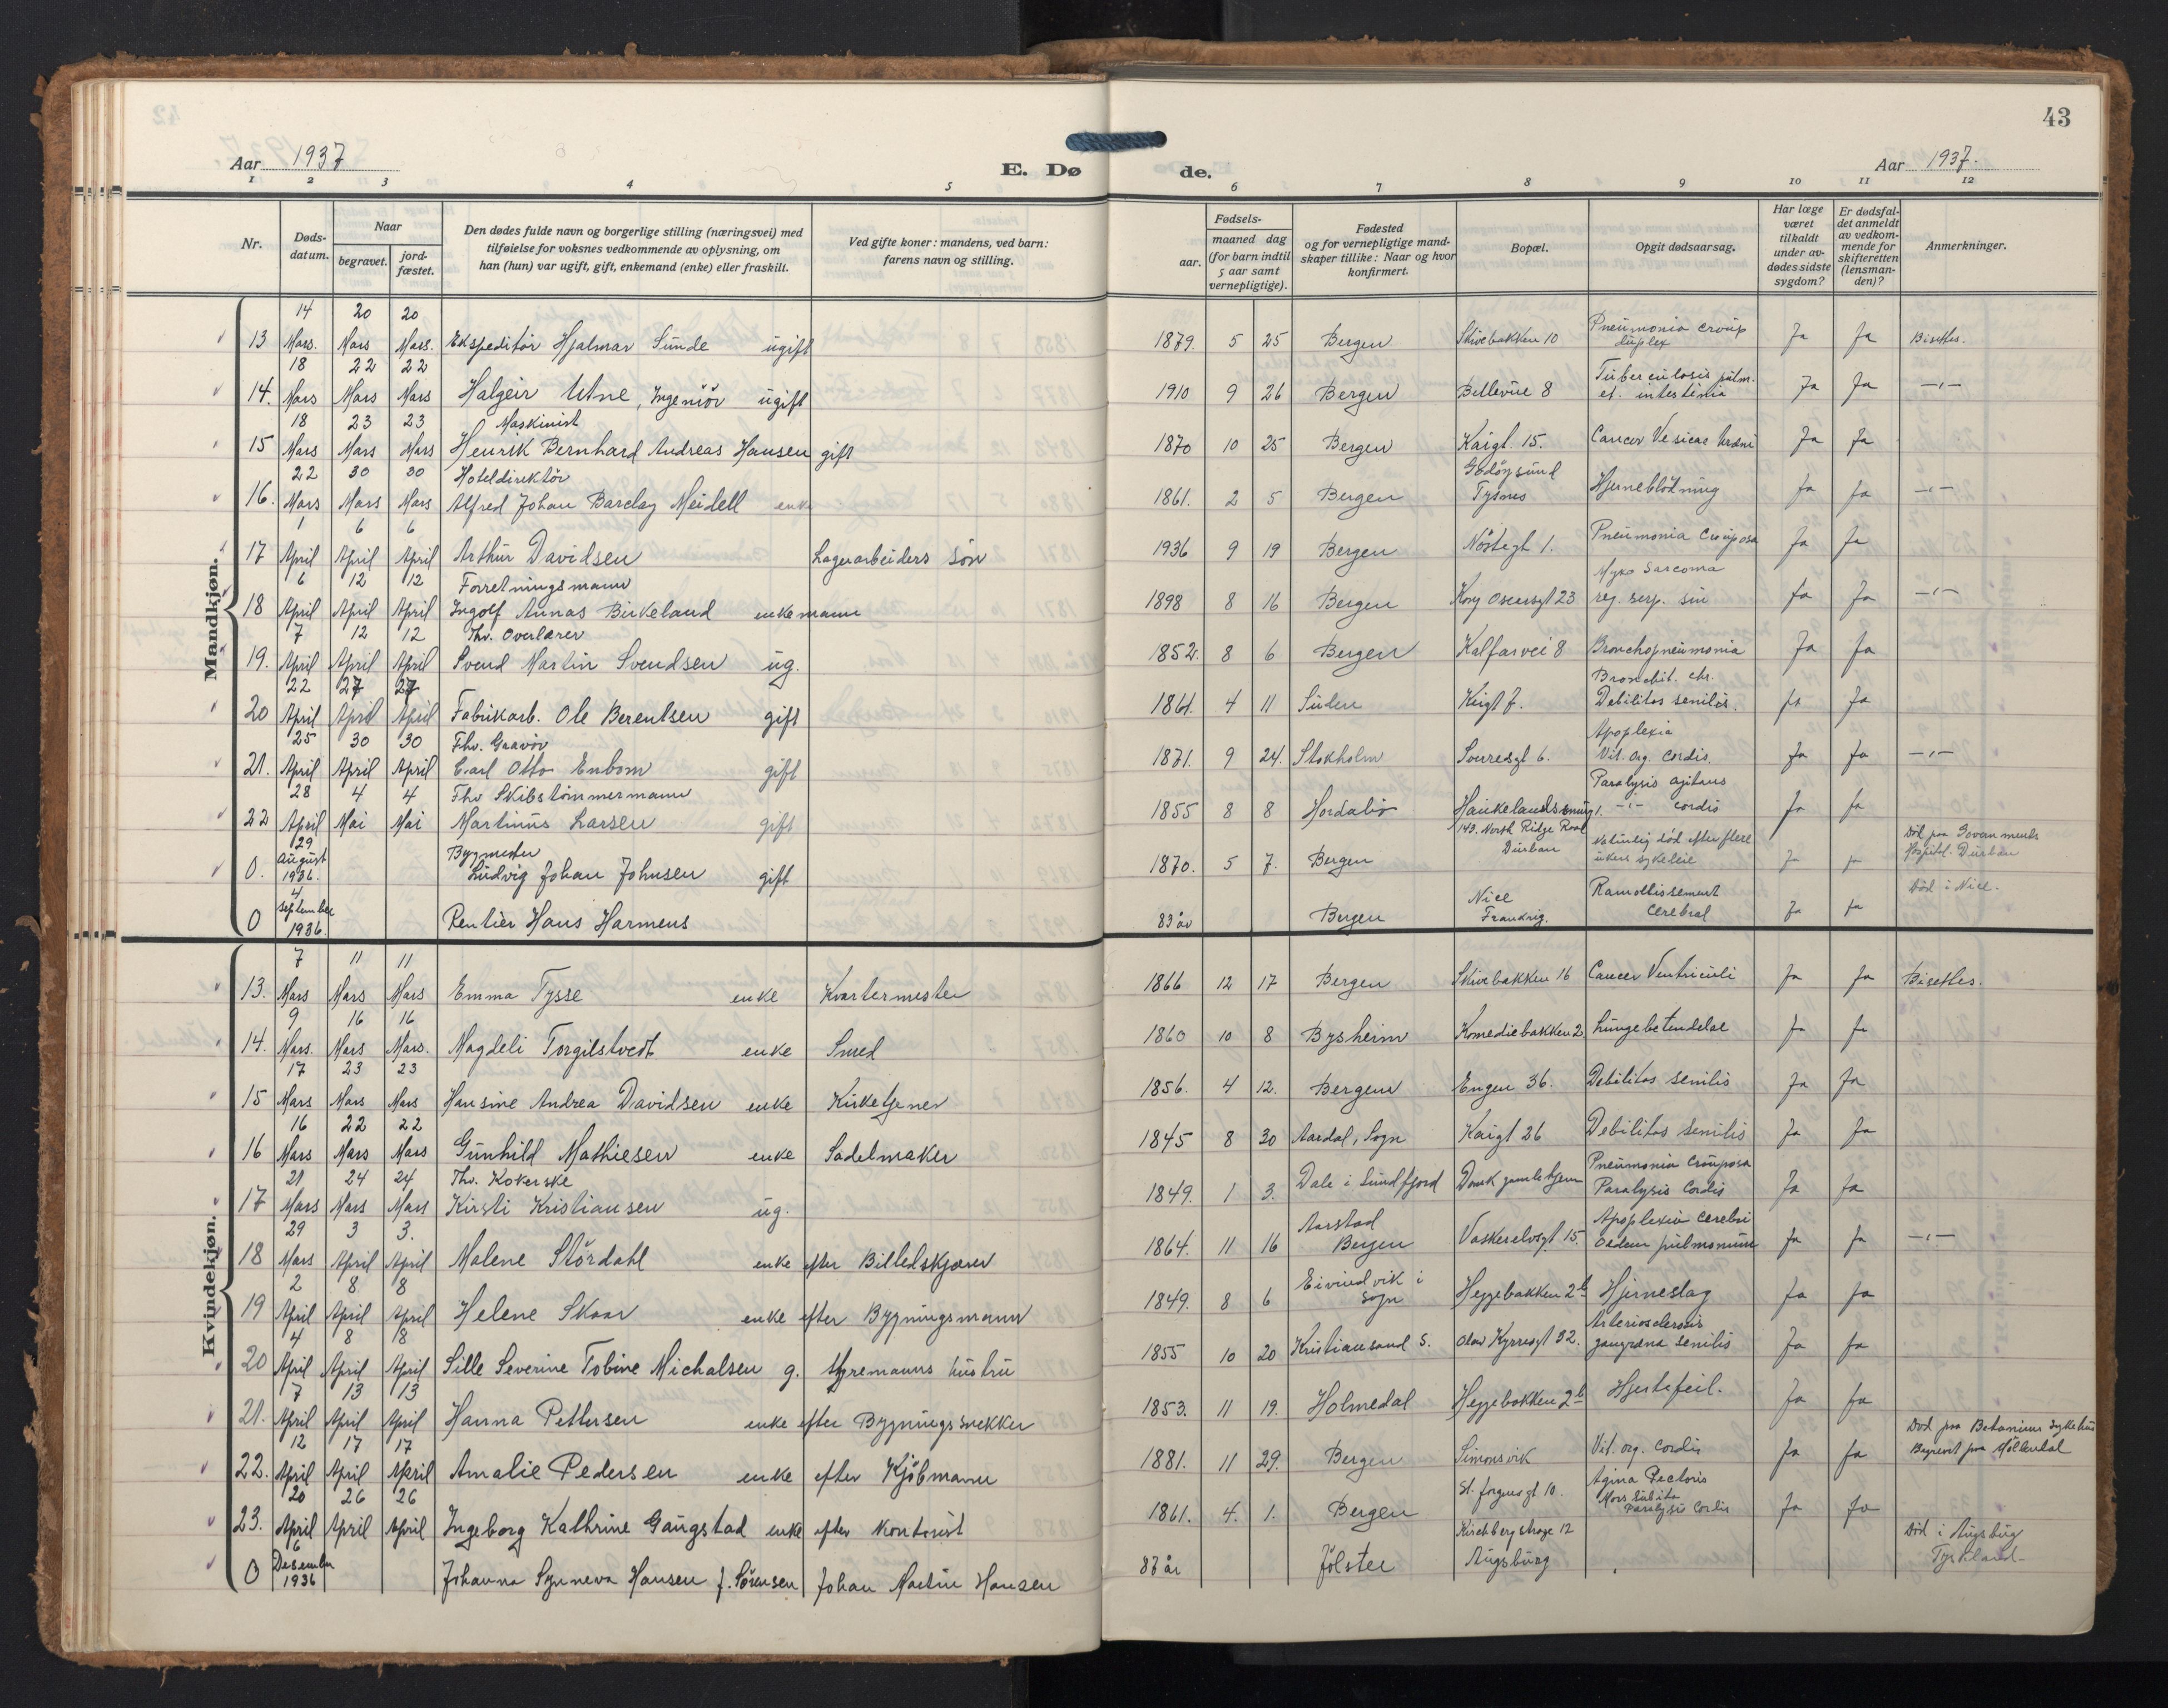 43
Aar 1937
E. Dø
de.
Aar 1937.
1 2 3 4 5 6 7 8 9 10 11 12
Nr.
Døds-
datum.
Naar
begravet.
jord-
fæstet.
Den dødes fulde navn og borgerlige stilling (næringsvei) med
tilføielse for voksnes vedkommende av oplysning, om
han (hun) var ugift, gift, enkemand (enke) eller fraskilt.
Ved gifte koner: mandens, ved barn:
farens navn og stilling.
Fødsels-
aar.
maaned dag
(for barn indtil
5 aar samt
vernepligtige).
Fødested
og for vernepligtige mand-
skaper tillike: Naar og hvor
konfirmert.
Bopæl.
Opgit dødsaarsag.
Har læge
været
tilkaldt
under av-
dødes sidste
sygdom?
Er dødsfal-
det anmeldt
av vedkom-
mende for
skifteretten
(lensman-
den)?
Anmerkninger.
Mandkjøn.
14 20 20
13 Mars. Mars Mars. Ekspeditør Hjalmar Sunde ugift 1879. 5 25 Bergen Skivebakken 10 Pneumonia croup duplex Ja Ja Bisettes.
18 22 22
14. Mars Mars Mars Halgeir Utne, Ingeniör ugift 1910 9 26 Bergen Bellevue 8 Tuberculosis pulm. et. intestinia Ja Ja -"-
18 23 23 Maskinist
15 Mars Mars Mars Henrik Bernhard Andreas Hansen gift 1870 10 25 Bergen Kaigt. 15. Cancer Vesicae Ja Ja
22 30 30 Hoteldirektør
16. Mars Mars Mars Alfred Johan Barclay Meidell enke 1861. 2 5 Bergen Godøysund Tysnes Hjerneblödning Ja Ja -"-
1 6 6
17 April April April Arthur Davidsen Lagerarbeiders sön 1936 9 19 Bergen Nöstegt 1. Pneumonia Crouposa Ja Ja
6 12 12 Forretningsmann
18 April April April Ingolf Annas Birkeland enkemann 1898 8 16 Bergen Kong Oscarsgt 23 Myxo Sarcoma reg. serp. sin Ja Ja -"-
7 12 12 Fhv. Overlærer
19. April April April Svend Martin Svendsen ug. 1852. 8 6 Bergen Kalfarvei 8 Bronchopneumonia Ja Ja
22 27 27
20 April April April Fabrikarb. Ole Berentsen gift 1861. 4 11 Suden Kaigt 7. Bronchit. chr. Debilitas senilis. ja Ja
25 30 30 Fhv. Gravör
21. April April April Carl Otto Enbom gift 1871. 9 24. Stokholm 6. Apoplexia Vit. org. cordis. Ja Ja -"-
28 4 4 Fhv Skibstömmermann
22 April Mai Mai Martinus Larsen gift 1855 8 8 Hordabö Haukelandssmug 1. Paralysis agitans -"- cordis Ja Ja
29 Bygmester
0. August 1936. Ludvig Johan Johnsen gift 1870. 5 7. Bergen 143. North Ridge Road Durban Naturlig död efter flere ukers sykeleie Ja ja Död paa Hospital. Durban
4
0 September 1936. Rentier Hans Harmens 83 år Bergen Nice Frankrig. Ramollissement cerebral Ja ja Död i Nice.
Kvindekjøn.
7 11 11
13. Mars Mars Mars Emma Tysse enke Kvartermester 1866 12 17 Bergen Skivebakken 16 Cancer Ventriculi Ja Ja Bisettes.
9 16 16
14. Mars. Mars Mars. Magdeli Torgilstvedt enke Smed 1860 10 8 Bysheim Komediebakken 2. Lungebetendelse Ja Ja
17 23 23
15 Mars Mars Mars Hansine Andrea Davidsen enke Kirketjener 1856. 4 12. Bergen Engen 36. Debilitas senilis Ja Ja
16 22 22
16 Mars Mars Mars Gunhild Mathiesen enke Sadelmaker 1845 8 30 Aardal, Sogn Kaigt 26 Debilitas senilis Ja Ja
21 24 24 Fhv. Kokerske
17 Mars Mars Mars Kirsti Kristiansen ug. 1849. 1 3. Dale i Sundfjord Domk gamlehjem Pneumonia Crouposa Paralysis Cordis Ja Ja
29 3 3.
18 Mars April April Malene Stördahl enke efter Billedskjærer 1864. 11 16 Aarstad Bergen Vaskerelvsgt 15. Apoplexia cerebri Oedem pulmonum Ja Ja -"-
2 8 8
19 April April April Helene Skaar enke efter Bygningsmann 1849. 8 6 Eivindvik i Sogn Heggebakken 2b Hjerneslag Ja Ja
4 8 8
20 April April April Sille Severine Tobine Michalsen g. Styremanns hustru 1855 10 20 Kristiansand S. Olav Kyrresgt 32. Arteriosclerosis gangræna senilis Ja Ja
7 13 13
21. April April April Hanna Pettersen enke efter Bygningssnekker 1853. 11 19. Holmedal Heggebakken 2b Hjertefeil. Ja Ja
12 17 17
22. April April April Amalie Pedersen enke efter Kjöbmann 1881. 11 29. Bergen Simonsvik Vit. org. cordis Ja Ja Död paa Betaniens Sykehus Begravet paa Möllendal
20 26 26
23. April April April Ingeborg Kathrine Gaugstad enke efter Kontorist 1861. 4. 1. Bergen St. Jørgensgt 10. Agina Pectoris Mors Subita Paralysis Cordis Ja Ja
6
0 Desember 1936 Johanna Synneva Hansen f. Sörensen Johan Martin Hansen 87 år Jölster Kirchbergstrasse 12 Augsburg Död i Augsburg Tyskland